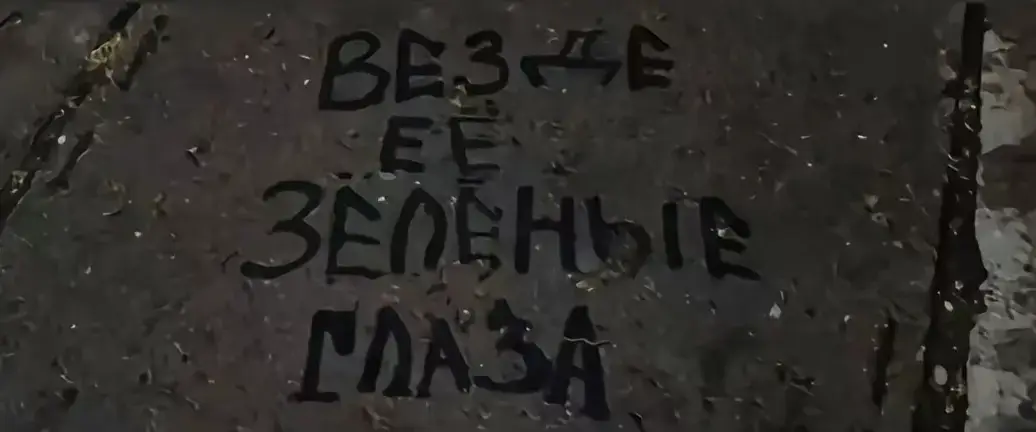 ВЕЗДЕ
ЕЁ
ЗЕЛЁНЫЕ
ГЛАЗА